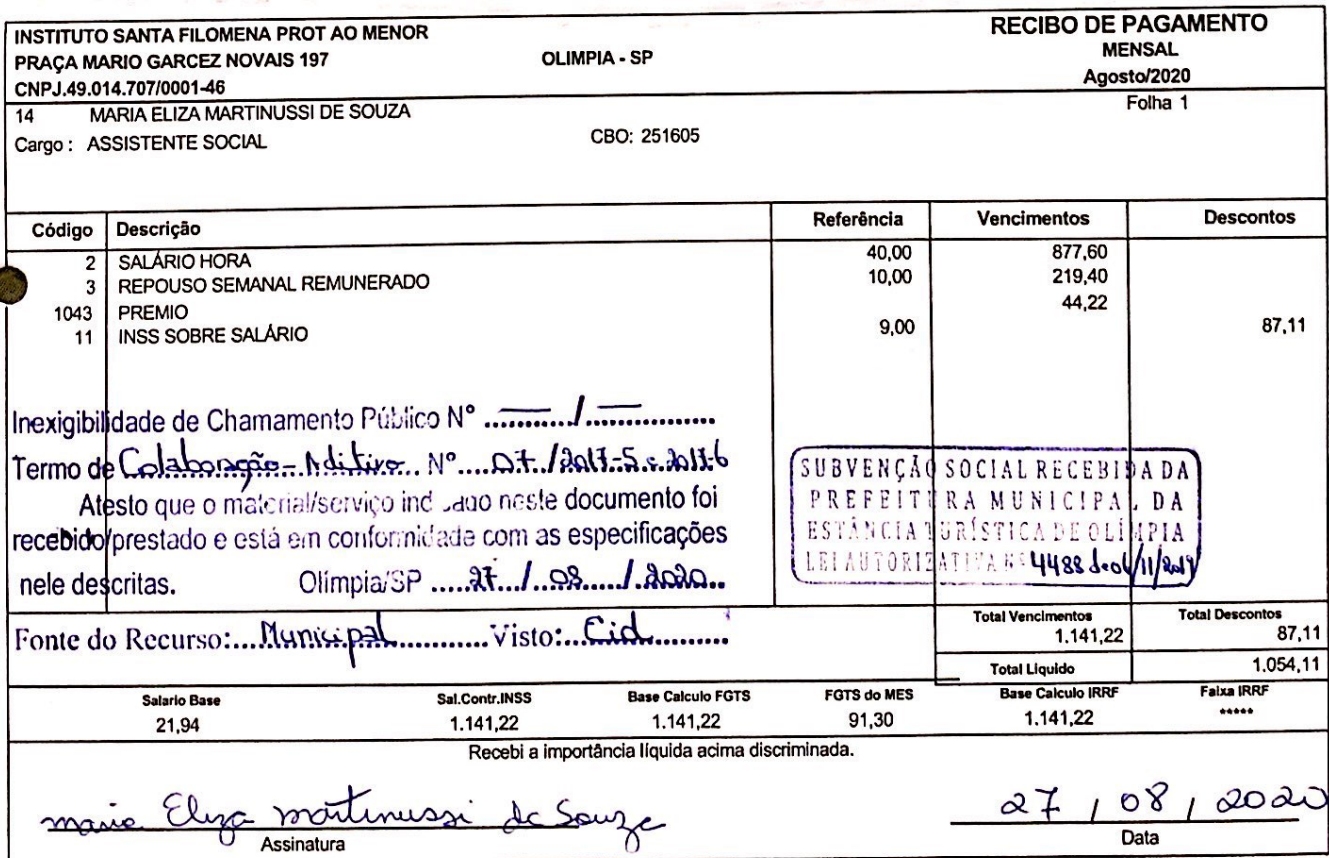 INSTITUTO SANTA FILOMENA PROT AO MENOR
PRAÇA MARIO GARCEZ NOVAIS 197 OLIMPIA - SP
CNPJ.49.014.707/0001-46
RECIBO DE PAGAMENTO
MENSAL
Agosto/2020
14 MARIA ELIZA MARTINUSSI DE SOUZA Folha 1
Cargo : ASSISTENTE SOCIAL CBO: 251605
Código Descrição Referência Vencimentos Descontos
2 SALÁRIO HORA 40,00 877,60
3 REPOUSO SEMANAL REMUNERADO 10,00 219,40
1043 PREMIO 44,22
11 INSS SOBRE SALÁRIO 9,00 87,11
Inexigibilidade de Chamamento Público Nº ...—.../...—...
Termo de Colaboração - Aditivo Nº 07/2017-5 e 2017-6
Atesto que o material/serviço indicado neste documento foi
recebido/prestado e está em conformidade com as especificações
nele descritas. Olímpia/SP 27/08/2020
SUBVENÇÃO SOCIAL RECEBIDA DA
PREFEITURA MUNICIPAL DA
ESTÂNCIA TURÍSTICA DE OLÍMPIA
LEI AUTORIZATIVA Nº 4488 de
Fonte do Recurso: Municipal Visto: Cid
Total Vencimentos Total Descontos
1.141,22 87,11
Total Liquido 1.054,11
Salario Base Sal.Contr.INSS Base Calculo FGTS FGTS do MES Base Calculo IRRF Faixa IRRF
21,94 1.141,22 1.141,22 91,30 1.141,22 *****
Recebi a importância líquida acima discriminada.
maria Eliza martinussi de Souza 27 / 08 / 2020
Assinatura Data